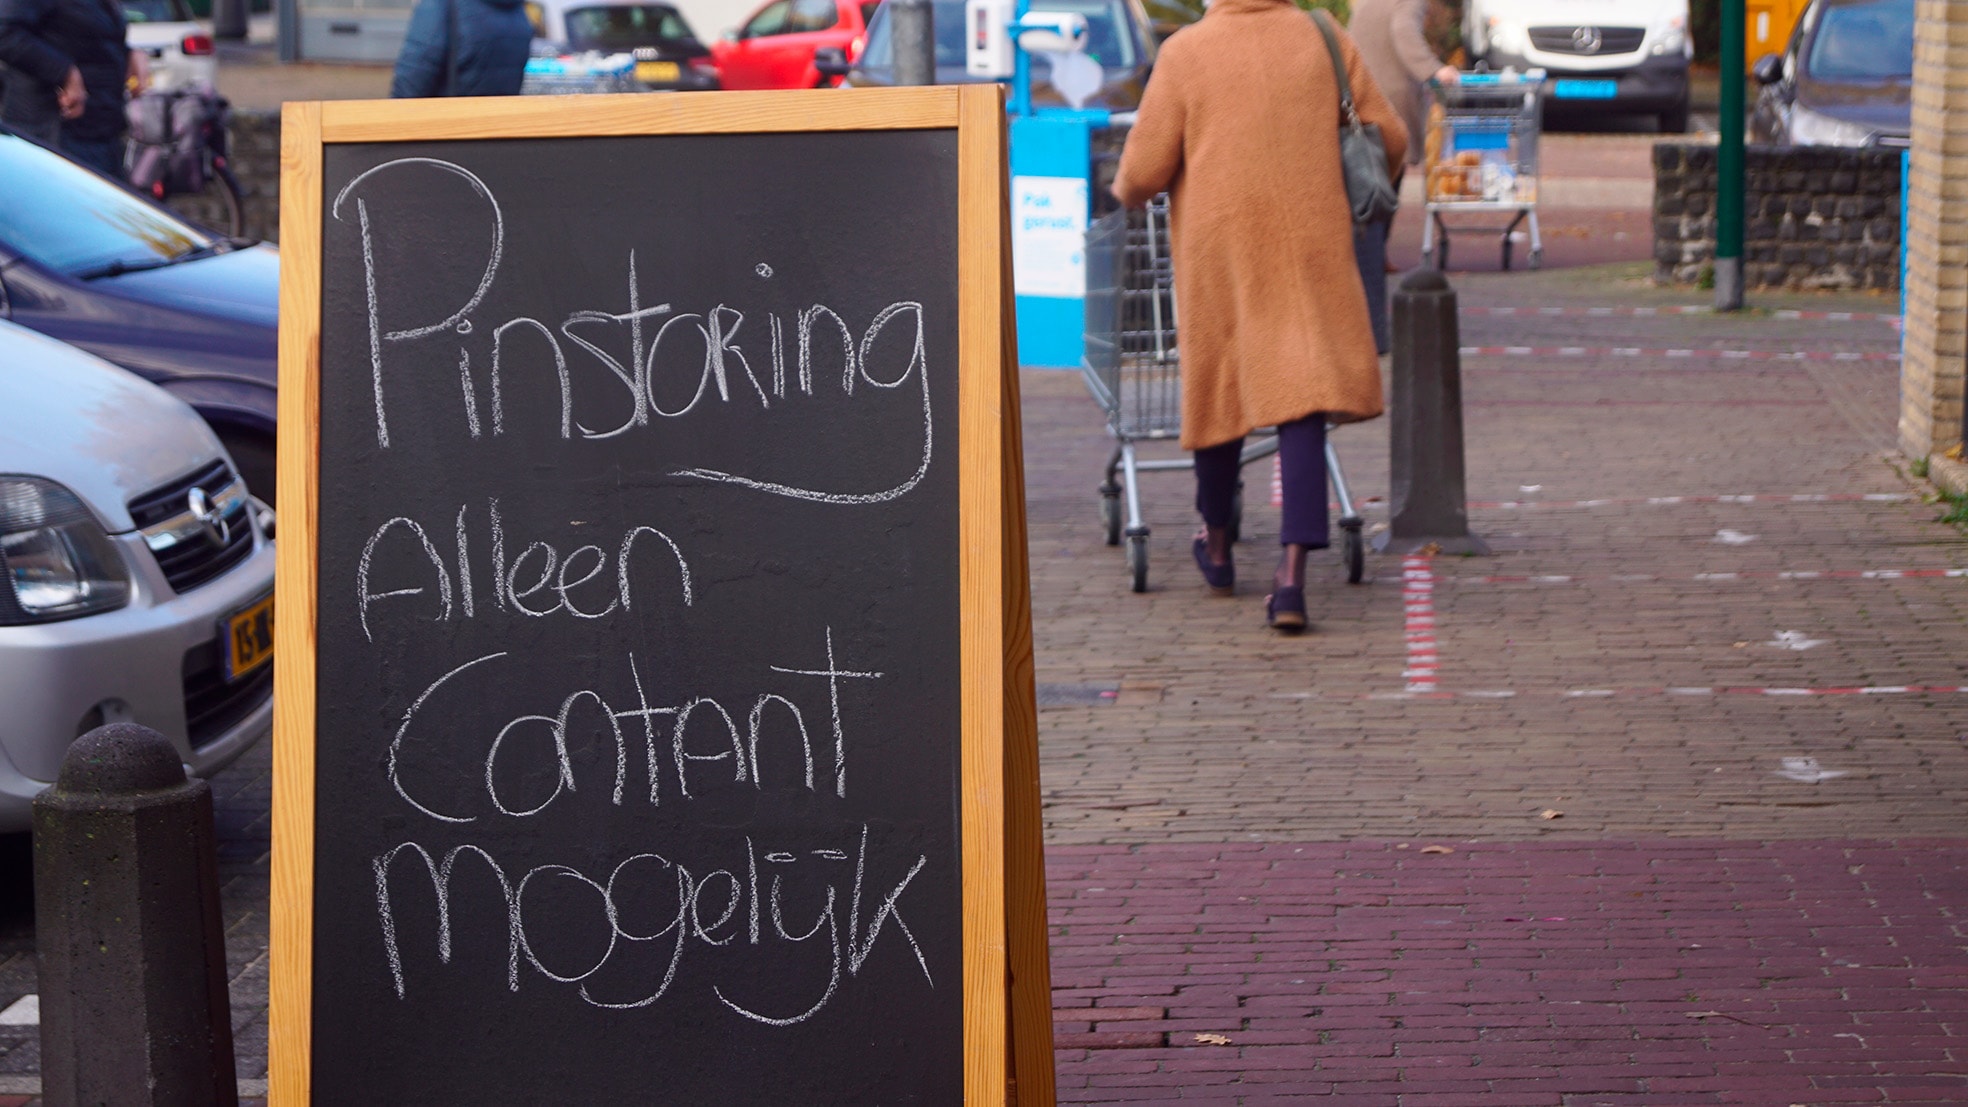 Pinstoring
Alleen
Contant
mogelijk
Pak
gerust.
15